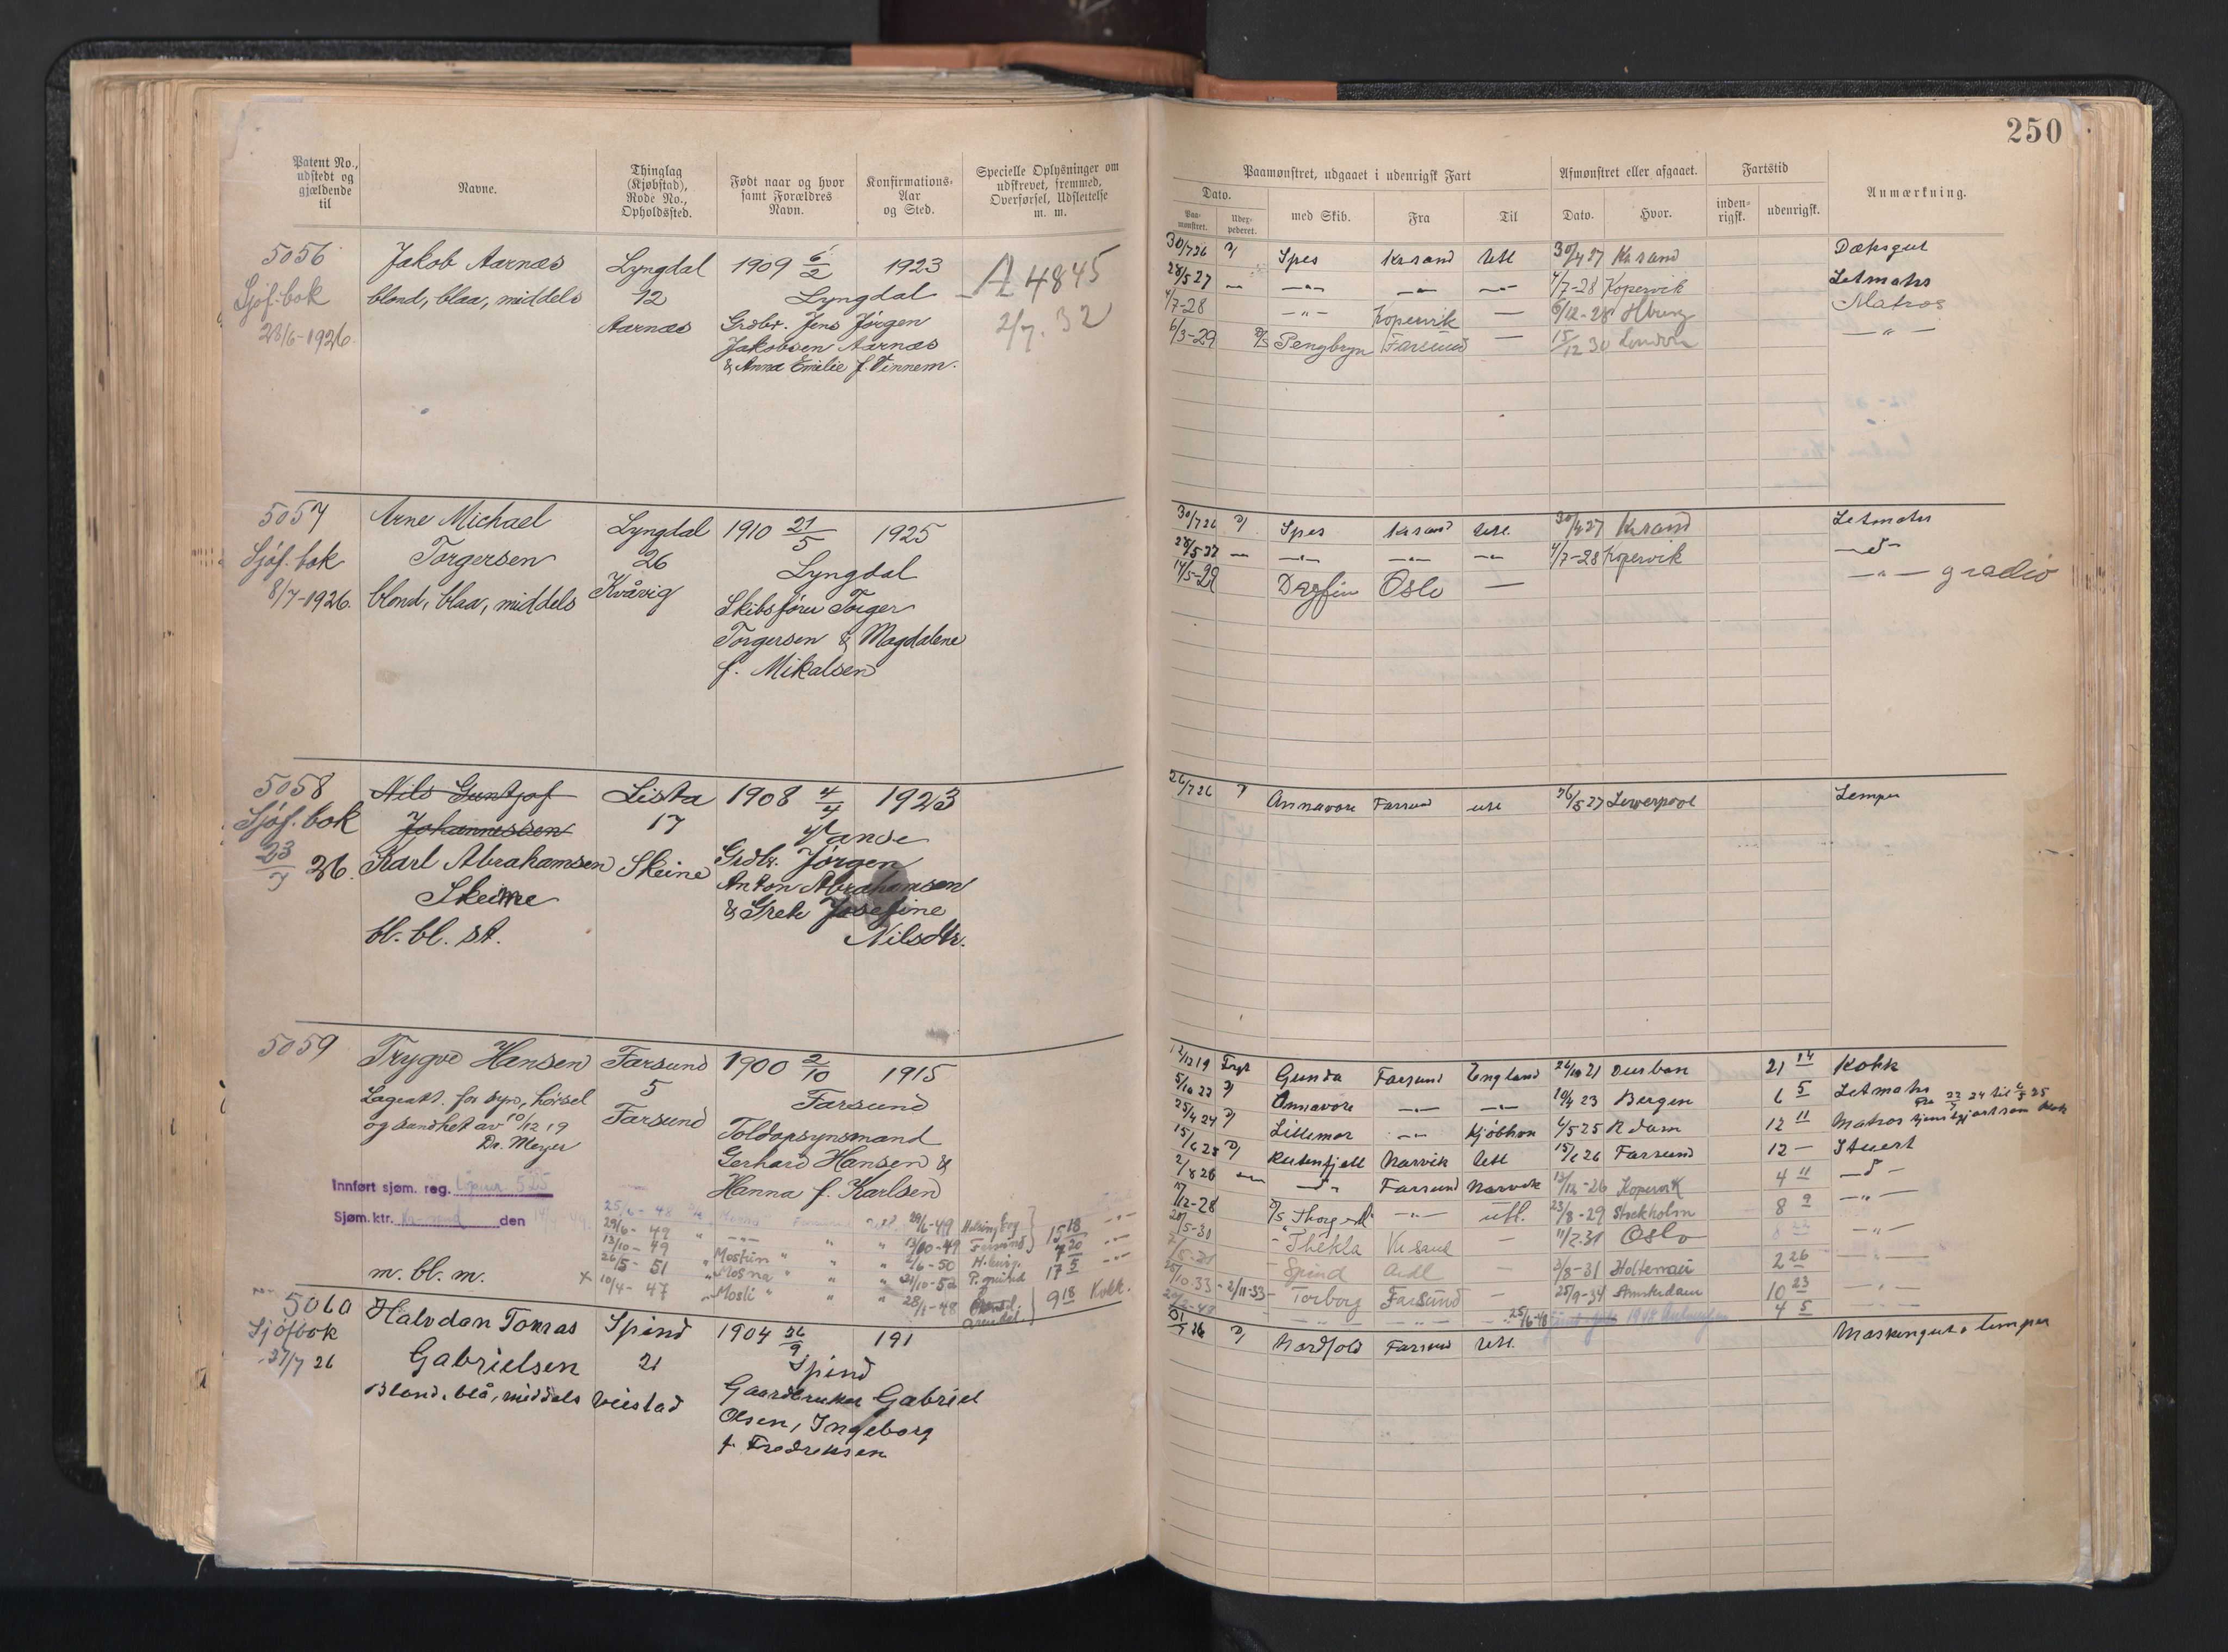 250
Patent No., udstedt og gjældende til
Navne.
Thinglag (Kjøbstad), Rode No., Opholdssted.
Født naar og hvor samt Forældres Navn.
Konfirmations-Aar og Sted.
Specielle Oplysninger om udskrevet, fremmed, Overførsel, Udslettelse m. m.
Paamønstret, udgaaet i udenrigsk Fart
Afmønstret eller afgaaet.
Fartstid
Anmærkning.
Dato.
Paa-mønstret.
med Skib.
Fra
Til
Dato.
Hvor.
inden-rigsk.
udenrigsk.
5056
Sjøf. bok
28/6-1926
Jakob Aarnæs
blond, blaa, middels
Lyngdal
12
Aarnæs
1909 6/2
1923
Lyngdal
Grdbr. Jens Jørgen
Jakobsen Aarnæs
& Anna Emilie f. Vinnem.
A 4845
2/7. 32
30/7 26 Spes Krsand Utl 30/4 27 Krsand Dæksgut
28/5 27 — — — 4/7-28 Kopervik Letmatrs
4/7-28 — " — Kopervik — 6/12-28 Matros
6/3-29 D/S Pengbryn Farsund — 15/12 30 London — " —
5057
Sjøf. bok
8/7-1926.
Arne Michael
Torgersen
blond, blaa, middels
Lyngdal
26
Kvåvig
1910 21/5
1925
Lyngdal
Skibsfører Torger
Torgersen & Magdalene
f. Mikalsen
30/7 26 Spes Krsand Utl. 30/4 27 Krsand Letmatrs
28/5 27 — — — 4/7-28 Kopervik
14/5-29 Dagfin Oslo —
5058
Sjøf. bok
23/7 26.
Nils Guntjof
Johannessen
Karl Abrahamsen
Skeime
bl. bl. st.
Lista
17
Skeine
1908 4/4
1923
Vanse
Grdbr. Jørgen
Anton Abrahamsen
& Grete Josefine
Nilsdtr.
26/7 26 Annavore Farsund utl 26/5 27 Lewerpool Lemper
5059
Trygve Hansen
Lægeatt. for syn, hørsel
og sundhet av 10/12 19
Dr. Meyer
m. bl. m.
Farsund
5
Farsund
1900 2/10
1915
Farsund
Toldopsynsmand
Gerhard Hansen &
Hanna f. Karlsen
Innført sjøm. reg.
Sjøm.ktr. den
25/6-48
29/6-49 " — " — " " 13/10-49 Farsund
13/10-49 " Mostun " " " 2/6-50
26/5-51 " Mosna " " " 24/10-52
x 10/4-47 " Mosli " " " 28/1-48 Arendal. 9 18 Kokk.
12/12 19 Gunda Farsund England 26/10 21 Durban 21 14 Kokk
5/10 22 Annavore — — 19/4 23 Bergen 6 5 Letmatrs
25/4 24 Lillemor — Kjøbhvn 6/5 25 R dam 12 11 Matros tjenstgjort som kok
15/6 25 Rutenfjell Narvik Utl 15/6 26 Farsund 12 — Stuert
2/8 26 Farsund Narvik 13/12-26 Kopervik 4 11
17/12-28 D/S — " — utl. 23/8-29 Stockholm 8 9 — " —
20/5-30 Thekla — 11/2.31 Oslo — " —
Spind — 2/8-31 Holtenau 2 26 — " —
25/10.33 - 2/11-33 Torborg Farsund — 25/9-34 Amsterdam 10 23 — " —
4 5
5060
Sjøfbok
27/7 26
Halvdan Tomas
Gabrielsen
Blond, blå, middels
Spind
21
Veistad
1904 26/9
191
Spind
Gaardbruker Gabriel
Olsen, Ingeborg
f. Fredreksen
31/7 26 Nordfold Farsund Utl. Maskingut o lemper